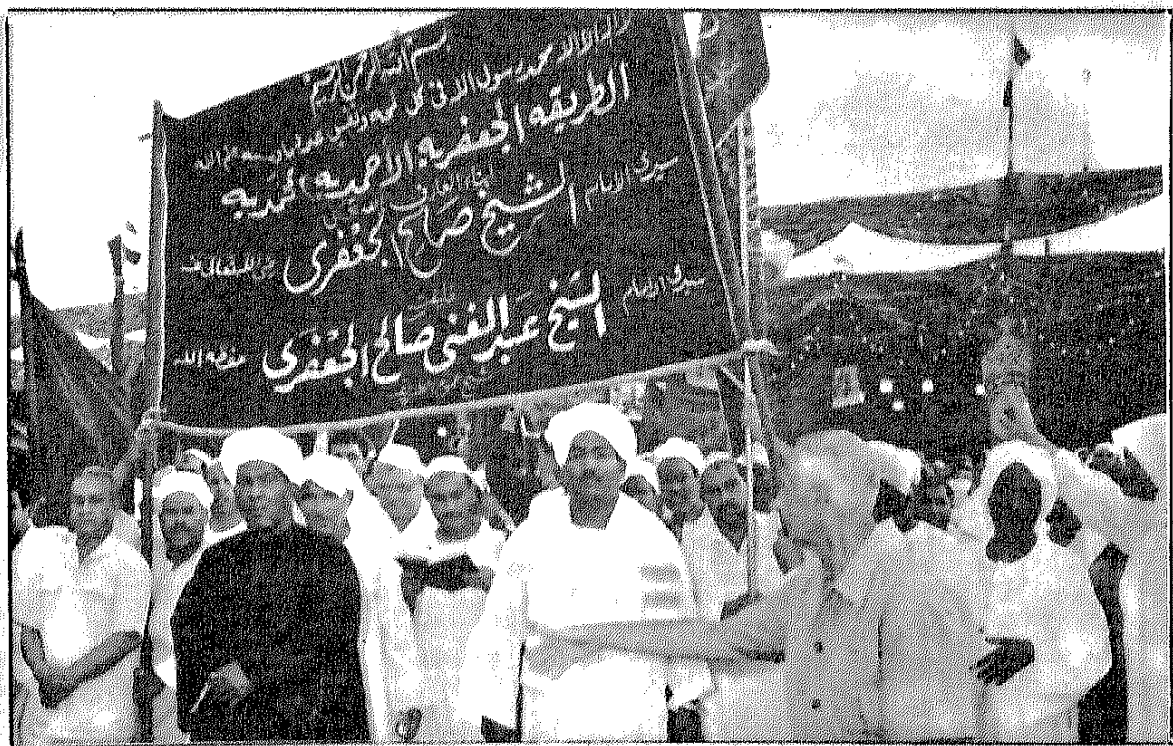 بسم الله الرحمن الرحيم
لا إله إلا الله محمد رسول الله فى كل لمحة ونفس عدد ما وسعه علم الله
الطريقه الجعفريه الأحمديه المحمديه
سيدى الإمام
الشيخ صالح الجعفرى
رضى الله تعالى عنه
سيدى الإمام
الشيخ عبد الغنى صالح الجعفرى